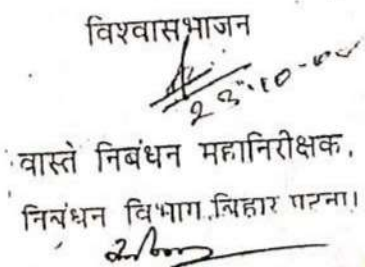 विश्वासभाजन
23.10.
वास्ते निबंधन महानिरीक्षक,
निबंधन विभाग,बिहार पटना।